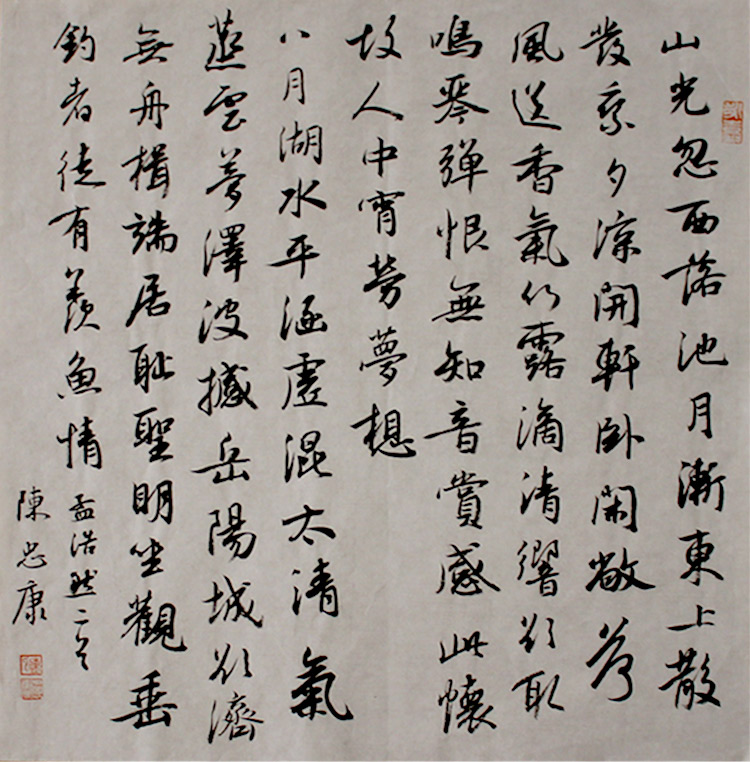 山光忽西落池月漸東上散
發乘夕涼開軒卧閑敞荷
風送香氣竹露滴清響欲取
鳴琴彈恨無知音賞感此懷
故人中宵勞夢想
八月湖水平涵虛混太清氣
蒸雲夢澤波撼岳陽城欲濟
無舟楫端居耻聖明坐觀垂
釣者徒有羨魚情 孟浩然二首
陳忠康